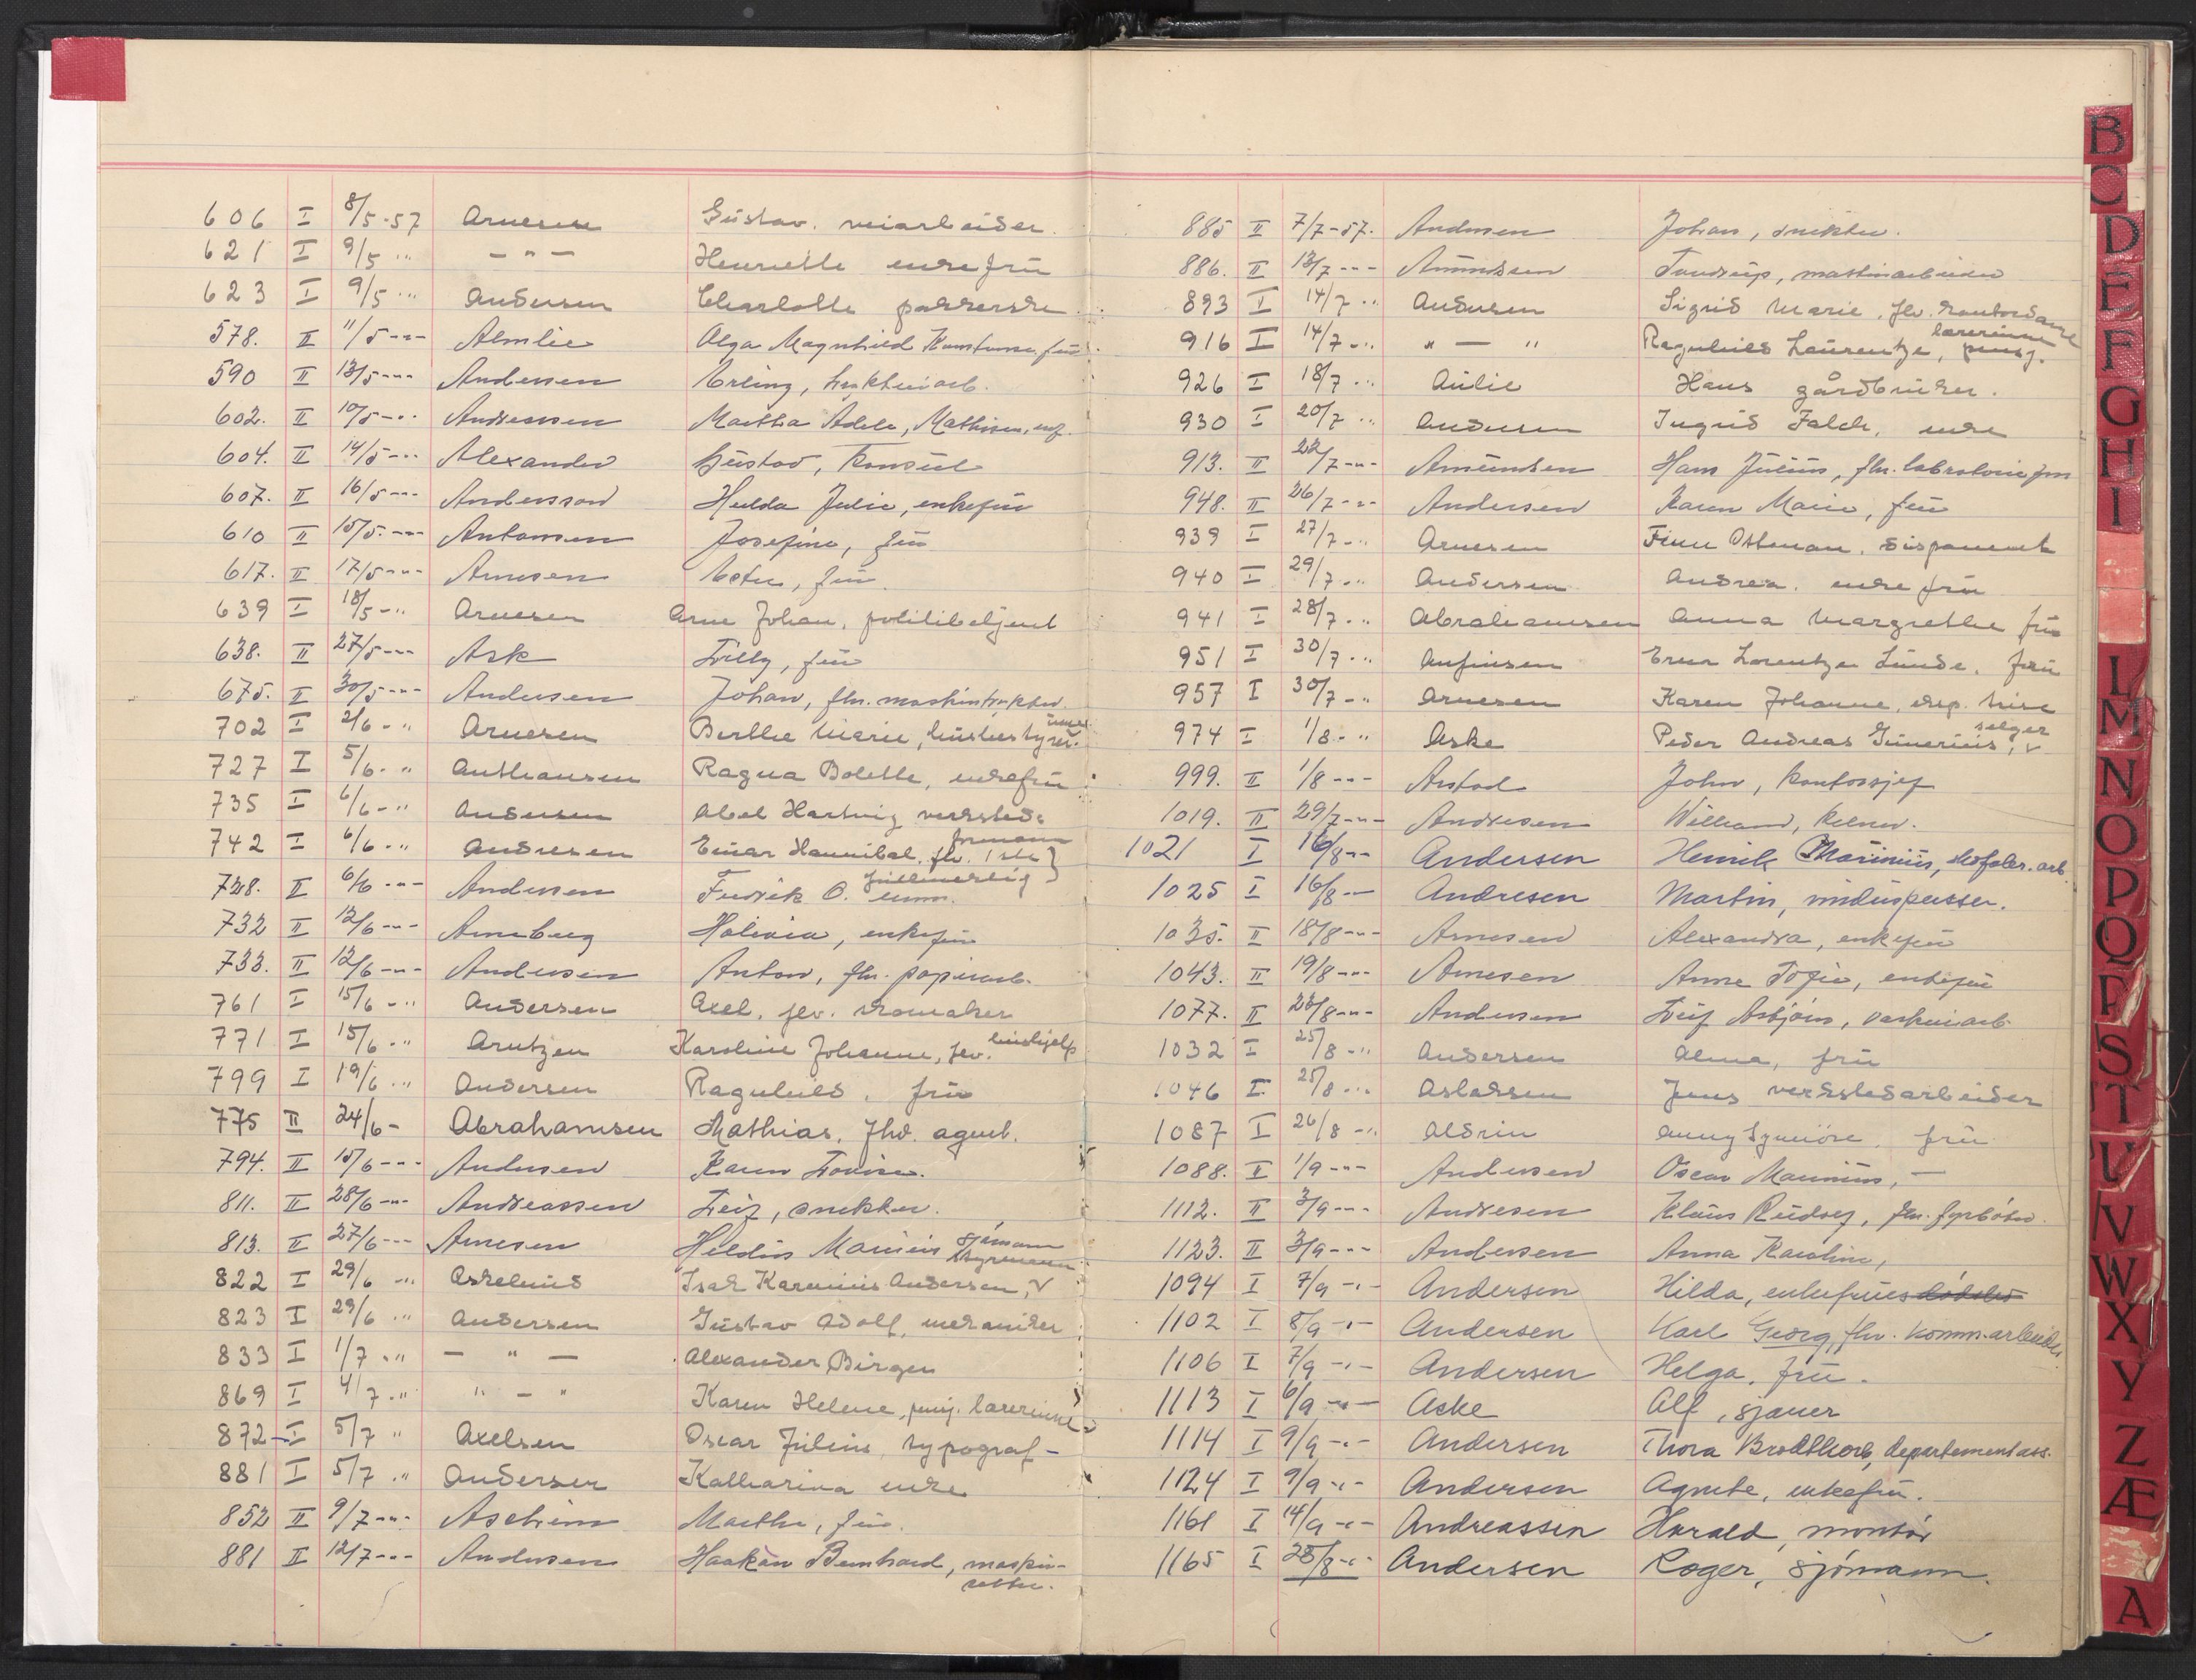 606 I 8/5-57 Arnesen Gustav. veiarbeider.
621 I 9/5 " — " — Henriette enkefrü
623 I 9/5 " Andersen Charlotte pakkerske
578. II 11/5 -"- Almlie Olga Magnhild früe
590 II 13/5 -"- Andersen Erling, trykkeriarb.
602. II 10/5 -"- Andreassen Martha Adele, Mathisen,
604. II 14/5 -"- Alexander Güstav, konsül
607. II 16/5 -"- Andersson Hulda Julie, enkefrü
610 II 15/5. -"- Antonsen Josefine, frü
617. II 17/5 -"- Arnesen Ester, frü.
639 I 18/5 -" Arnesen Arne Johan, politibetjent
638. II 27/5 -"- Ask Lilly, frü
675. II 30/5 -"- Andersen Johan, fhv. maskintrykker.
702 I 2/6 -" Arnesen Berthe Marie, hüsbestyrer.
727 I 5/6 -" Anthonsen Ragna Bolette, enkefrü
735 I 6/6 -" Andersen Abel Hartvig verksteds
formann
742 I 6/6 -" Andresen Einar Hannibal. fv. 1ste
füllmektig
728. II 6/6 -"- Andersen Fredrik O.
732 II 12/6 -"- Arneberg Halvina, enkefrü
733. II 12/6 -"- Andersen Anton, fhv. papirarb.
761 I 15/6 -" Andersen Axel, fhv. skomaker
771 I 15/6 -" Arntzen Karoline Johanne, fhv. hüshjelp
799 I 19/6 -" Andersen Ragnhild, frü
775 II 24/6 - Abrahamsen Mathias, fhv. agent.
794. II 15/6 -"- Andersen Karen Lovise.
811. II 28/6 -"- Andreassen Leif, snekker.
813. II 27/6 -"- Arnesen Heldin Marius sjömann
styrmann
822 I 29/6 -" Askelund Isak Karenius Andersen,
823 I 29/6 " Andersen Güstav Adolf, mekaniker
833 I 1/7 -" — " — Alexander Birger
869 I 4/7 -" " — " Karen Helene, pensj. lærerinne
872 I 5/7 " Axelsen Oscar Julius, typograf
881 I 5/7 -" Andersen Katharina enke
852 II 9/7 -"- Aschim Marthe, frü.
881 II 12/7 -"- Andersen Haakon Bernhard, maskin-
setter.
885 II 7/7-57. Andersen Johan, snekker.
886. II 13/7 -"- Amündsen maskinarbeider
893 I 14/7 -" Andersen Sigrid Marie, fhv. kontordame
lærerinne
916 I 14/7 -" " — " Ragnhild Laurentze, pensj.
926 I 18/7 -" Aulie Hans gårdbruker.
930 I 20/7 -" Andersen Ingrid Falch, enke
913. II 22/7 -"- Amündsen Hans Julius, fhv.
948. II 26/7 -"- Andersen Karen Marie, frü
939 I 27/7 -" Arnesen Finn Ottman. disponent
940 I 29/7 -" Andersen Andrea. enkefrü
941 I 28/7 -" Abrahamsen Anna Margrethe frü
951 I 30/7 -" Anfinsen Erna Lorentze Lunde. frü
957 I 30/7 -" Arnesen Karen Johanne, eksp. trise
selger
974 I 1/8 -" Aske Peder Andreas
999. II 1/8 -"- Arstad John, kontorsjef
1019. II 29/7 -"- Andresen William, kelner.
1021 I 16/8 -"- Andersen Henrik Marinius, skofabr. arb.
1025 I 16/8 -"- Andresen Martin, vinduspusser.
1035. II 18/8 -"- Arnesen Alexandra, enkefrü
1043. II 19/8 -"- Arnesen Anne Tofie, enkefrü
1077. II 23/8 -"- Andersen Leif Asbjörn,
1032 I 25/8 -" Andersen Alma, frü
1046 I 25/8 -" Aslaksen Jens verkstedarbeider
1087 I 26/8 -" Aldrin Anny Synnöve, frü
1088. II 1/9 -"- Andersen Oscar Marinius, —
1112. II 3/9 -"- Andresen Klaus Rüdolf, fhv. fyrböter.
1123. II 3/9 -"- Andersen Anna Karoline,
1094 I 7/9 -"- Andersen Hilda, enkefrües
1102 I 8/9 -"- Andersen Karl Georg, fhv. komm.arbeider.
1106 I 7/9 -"- Andersen Helga, frü.
1113 I 6/9 -"- Aske Alf, sjauer
1114 I 9/9 -"- Andersen Thora Brodtkorb, departementass.
1124 I 9/9 -"- Andersen Agnete, enkefrü.
1161 I 14/9 -"- Andreassen Harald, montör
1165 I 28/8 -"- Andersen Roger, sjömann.
B
C
D
E
F
G
H
I
L
M
N
O
P
Q
R
S
T
U
V
W
X
Y
Z
Æ
A